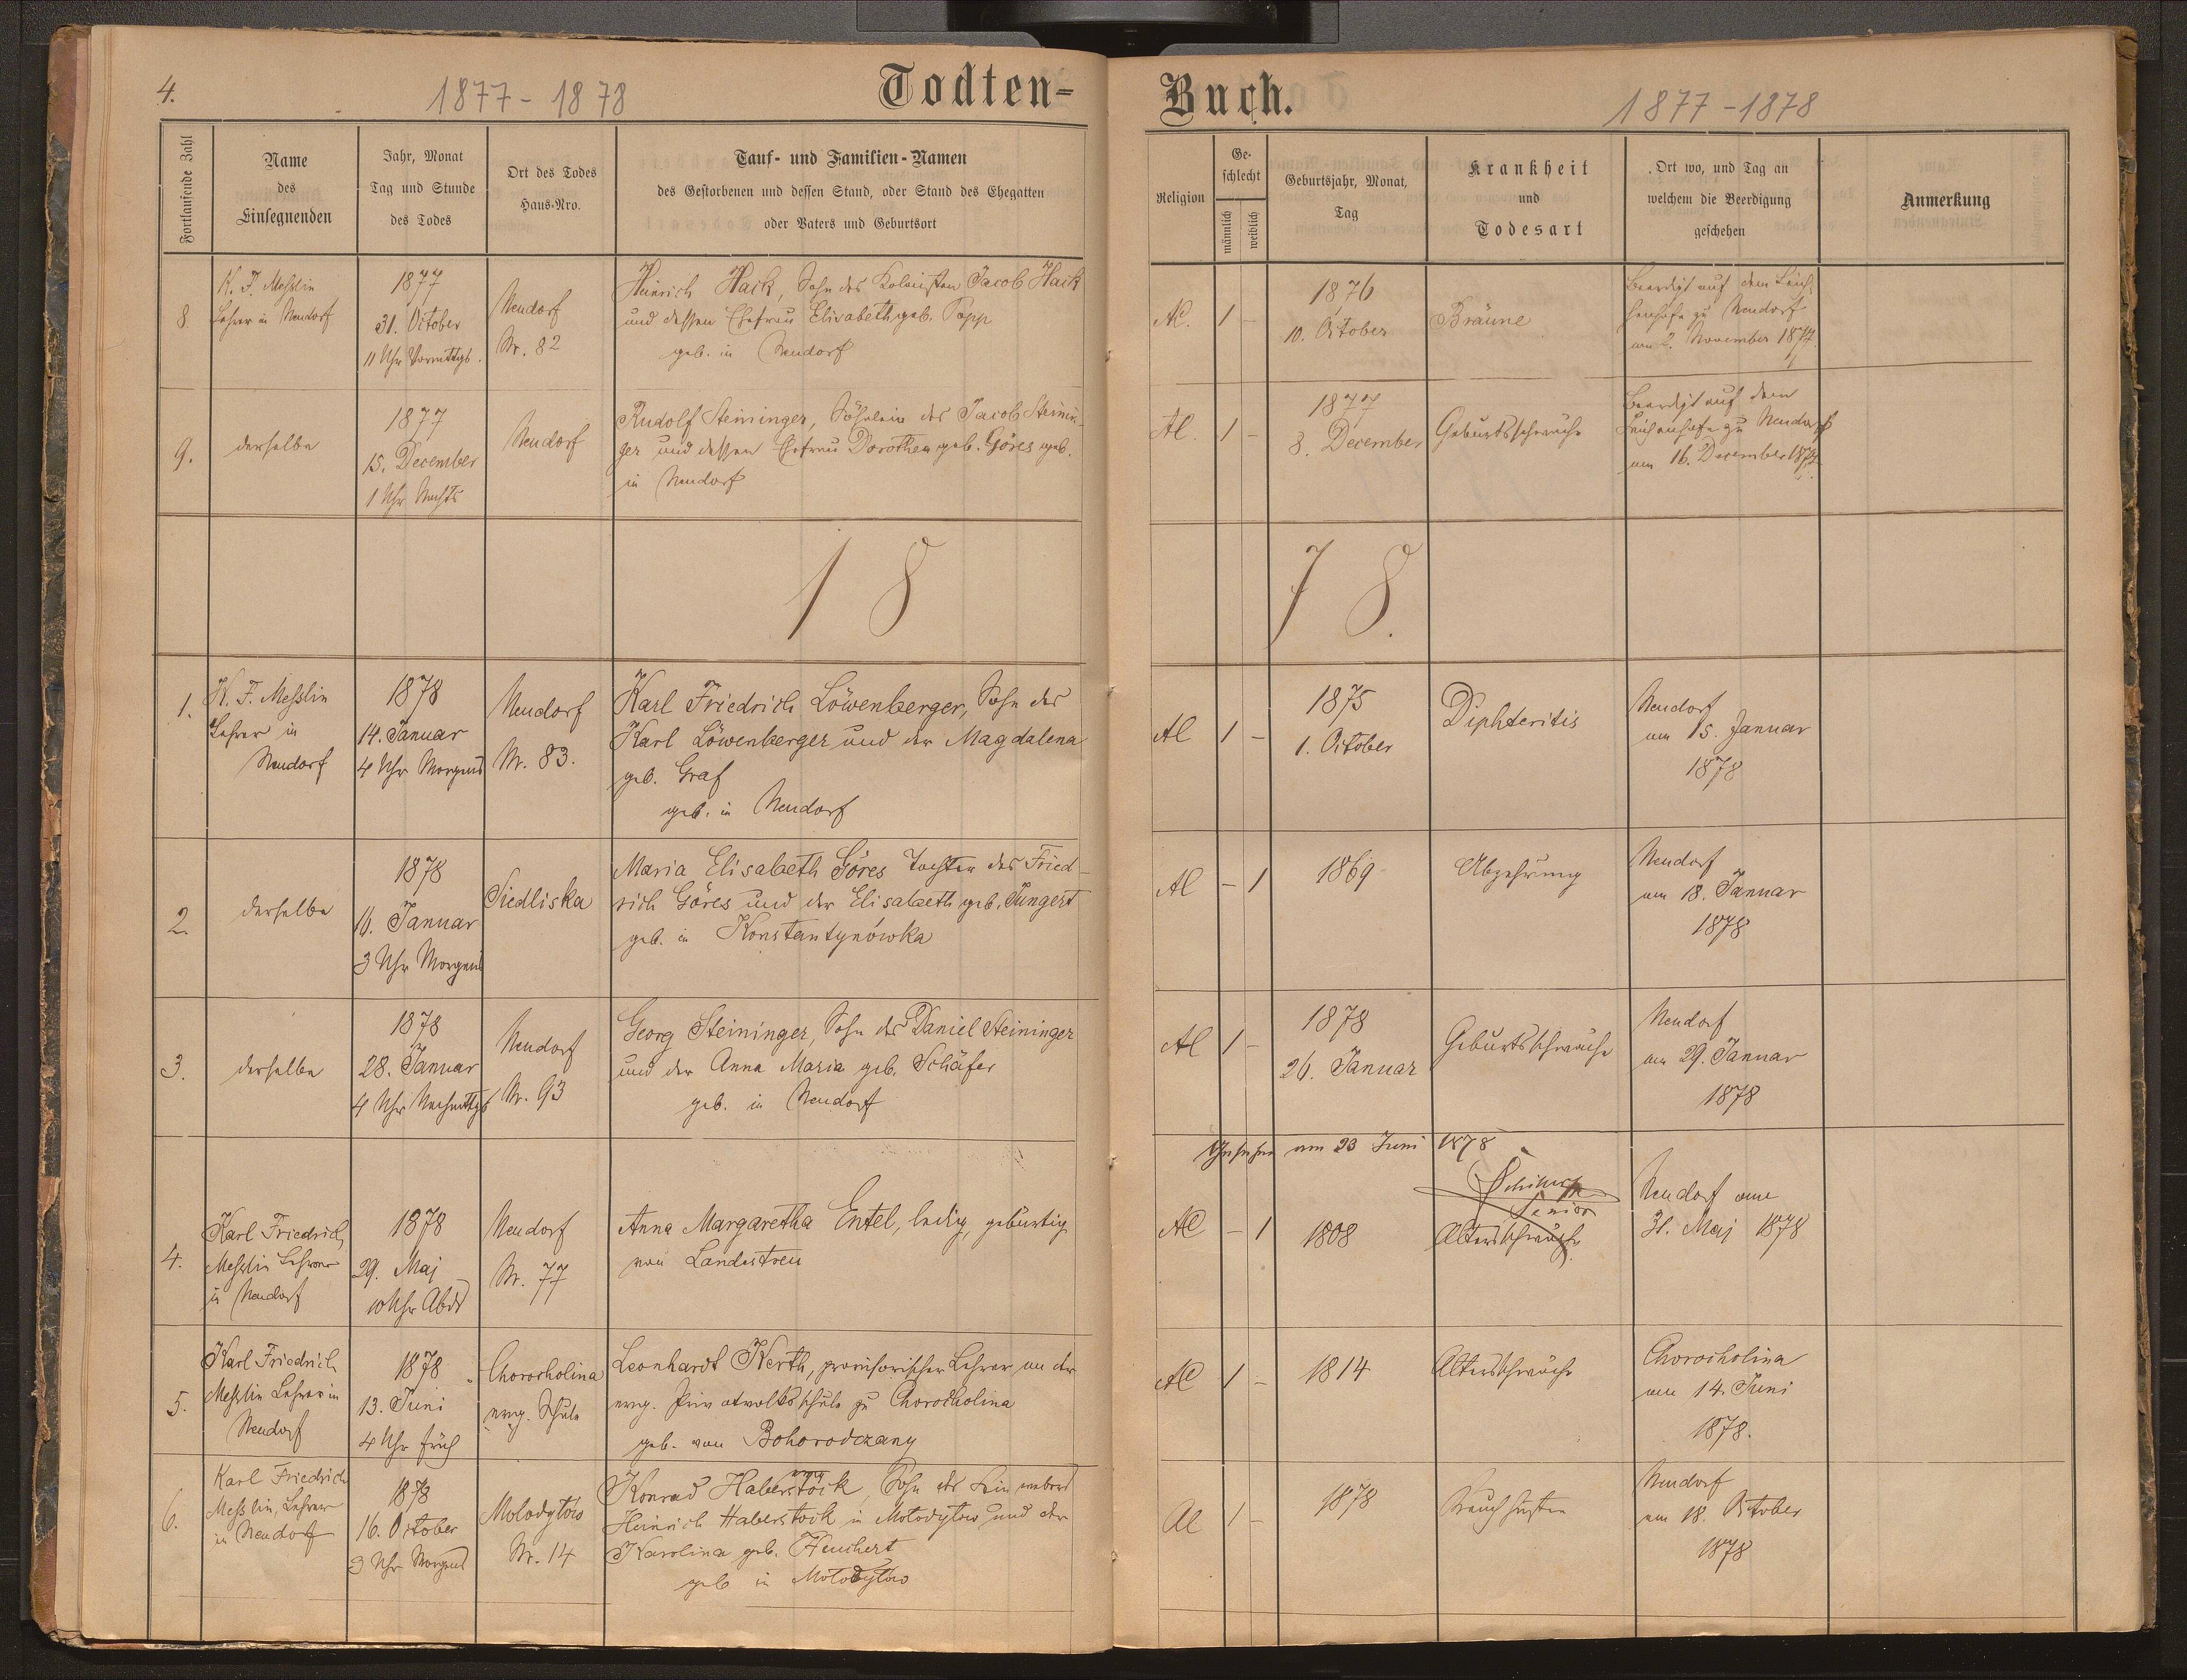 4.
1877 - 1878
Todten-
Fortlaufende Zahl
Name
des
Einsegnenden
Jahr, Monat
Tag und Stunde
des Todes
Ort des Todes
Haus-Nro.
Tauf- und Familien-Namen
des Gestorbenen und dessen Stand, oder Stand des Ehegatten
oder Vaters und Geburtsort
8.
K. F. Messlin
Lehrer in Neudorf
1877
31. October
11 Uhr Vormittgs.
Neudorf
Nr. 82
Heinrich Hack, Sohn des Kolonisten Jacob Hack
und dessen Ehefrau Elisabeth geb. Popp
geb. in Neudorf
9.
derselbe
1877
15. December
1 Uhr Nachts
Neudorf
Rudolf Steininger, Söhnlein des Jacob Steinin-
ger und dessen Ehefrau Dorothea geb. Göres geb.
in Neudorf
18
1.
K. F. Messlin
Lehrer in
Neudorf
1878
14. Januar
4 Uhr Morgens
Neudorf
Nr. 83.
Karl Friedrich Löwenberger, Sohn des
Karl Löwenberger und der Magdalena
geb. Graf
geb. in Neudorf
2.
derselbe
1878
16. Januar
3 Uhr Morgens
Siedliska
Maria Elisabeth Göres Tochter des Fried-
rich Göres und der Elisabeth geb. Jungert
geb. in Konstantynówka
3.
derselbe
1878
28. Januar
4 Uhr Nachmittgs
Neudorf
Nr. 93
Georg Steininger, Sohn des Daniel Steininger
und der Anna Maria geb. Schäfer
geb. in Neudorf
4.
Karl Friedrich
Messlin Lehrer
in Neudorf
1878
29. Maj
10 Uhr Abds
Neudorf
Nr. 77
Anna Margaretha Entel, ledig, gebürtig
von Landestreu
5.
Karl Friedrich
Messlin Lehrer in
Neudorf
1878
13. Juni
4 Uhr früh
Chorocholina
evng. Schule
Leonhardt Kerth, provisorischer Lehrer an der
evng. Privatvolksschule zu Chorocholina
geb. von Bohorodczany
6.
Karl Friedrich
Messlin, Lehrer
in Neudorf
1878
16. October
3 Uhr Morgens
Molodytow
Nr. 14
Konrad Haberstock, Sohn des Leinwebers
Heinrich Haberstock in Molodytow und der
Karolina geb. Heuchert
geb in Molodytow
Buch.
1877 - 1878
Religion
Ge-
schlecht
männlich
weiblich
Geburtsjahr, Monat,
Tag
Krankheit
und
Todesart
Ort wo, und Tag an
welchem die Beerdigung
geschehen
Anmerkung
AC.
1
-
1876
10. October
Bräune
Beerdigt auf dem Leich-
henhofe zu Neudorf
am 2. November 1877
AC.
1
-
1877
8. December
Geburtsschwäche
Beerdigt auf dem
Leichenhofe zu Neudorf
am 16. December 1877
78.
AC
1
-
1875
1. October
Diphteritis
Neudorf
am 15. Januar
1878
AC
-
1
1869
Abzehrung
Neudorf
am 18. Januar
1878
AC
1
-
1878
26. Januar
Geburtsschwäche
Neudorf
am 29. Januar
1878
Gesehen am 23 Juni 1878
Senior
AC
-
1
1808
Altersschwäche
Neudorf am
31. Maj 1878
AC
1
-
1814
Altersschwäche
Chorocholina
am 14. Juni
1878.
AC
1
-
1878
Keuchhusten
Neudorf
am 18. October
1878